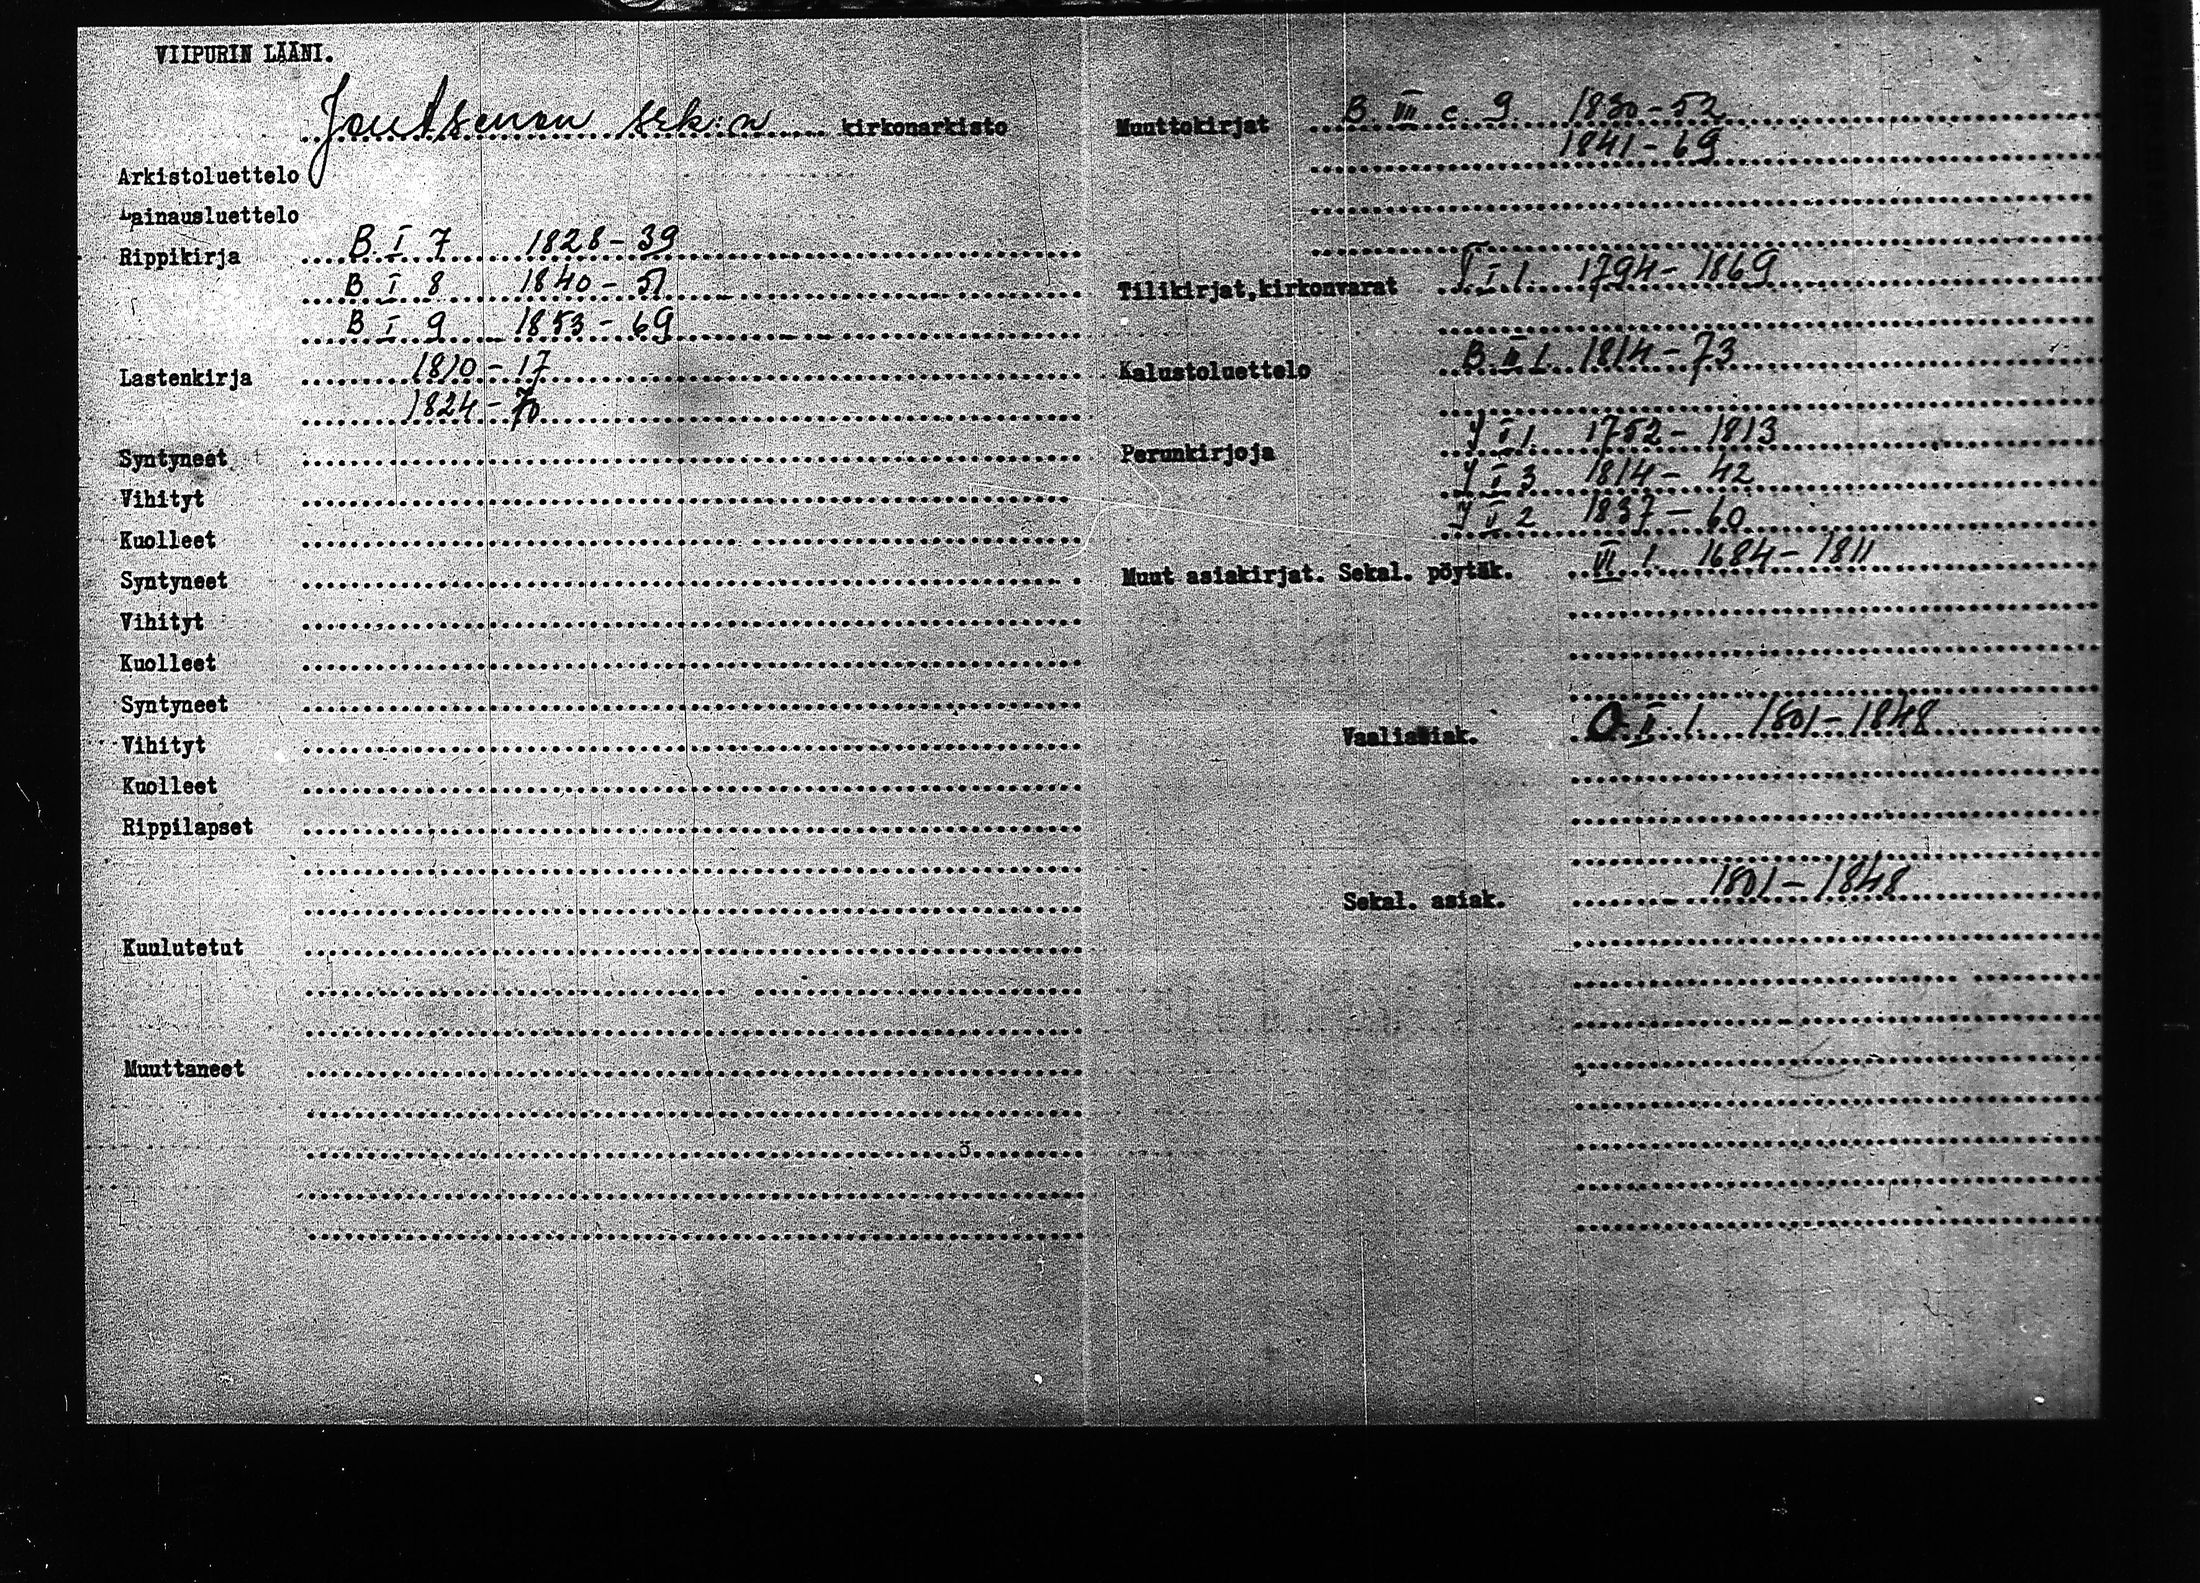 VIIPURIN LÄÄNI.
Joutsenon srk:n kirkonarkisto
Arkistoluettelo
Lainausluettelo
Rippikirja B I 7 1828-39
B I 8 1840-51
B I 9 1853-69
Lastenkirja 1810-17
1824-70
Syntyneet
Vihityt
Kuolleet
Syntyneet
Vihityt
Kuolleet
Syntyneet
Vihityt
Kuolleet
Rippilapset
Kuulutetut
Muuttaneet
ö
Muuttokirjat B III c 9 1830-52
1841-69
Tilikirjat,kirkonvarat I 1 1794-1869
Kalustoluettelo B II 1 1814-73
Perunkirjoja J I 1 1752-1813
J I 3 1814-42
J I 2 1837-60
Muut asiakirjat. Sekal. pöytäk. VII 1 1684-1811
Vaaliasiak. O I 1 1801-1848
Sekal. asiak. 1801-1848